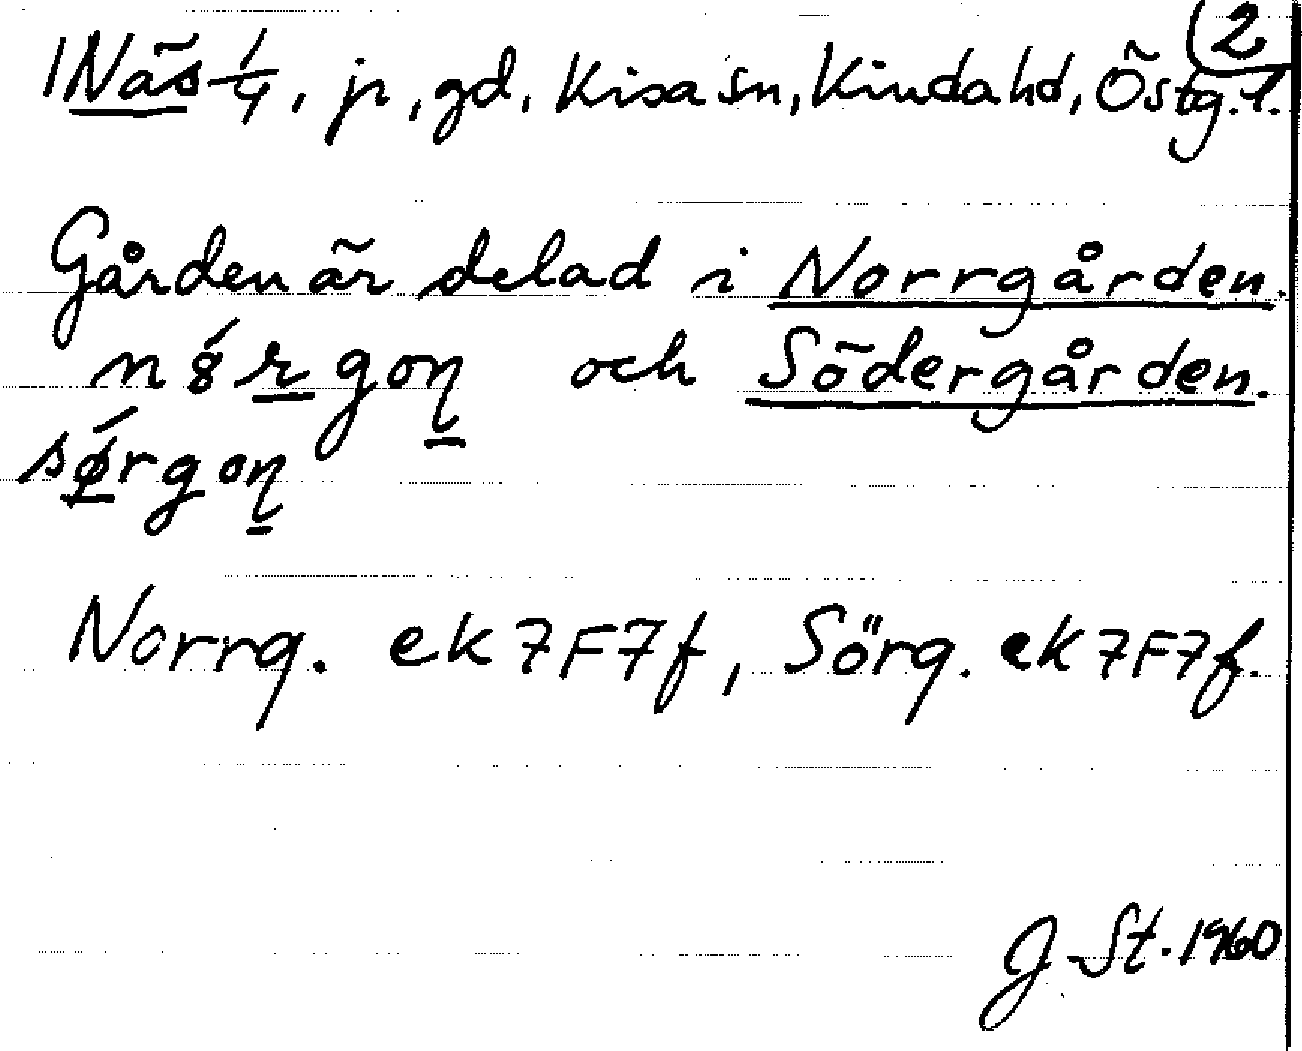 (2
1 Näs 1/4, jr, gd, Kisa sn, Kinda hd, Östg. l.
Gården är delad i Norrgården.
och Södergården.
Norrg. ek 7F7f, Sörg. ek 7F7f.
J. St. 1960